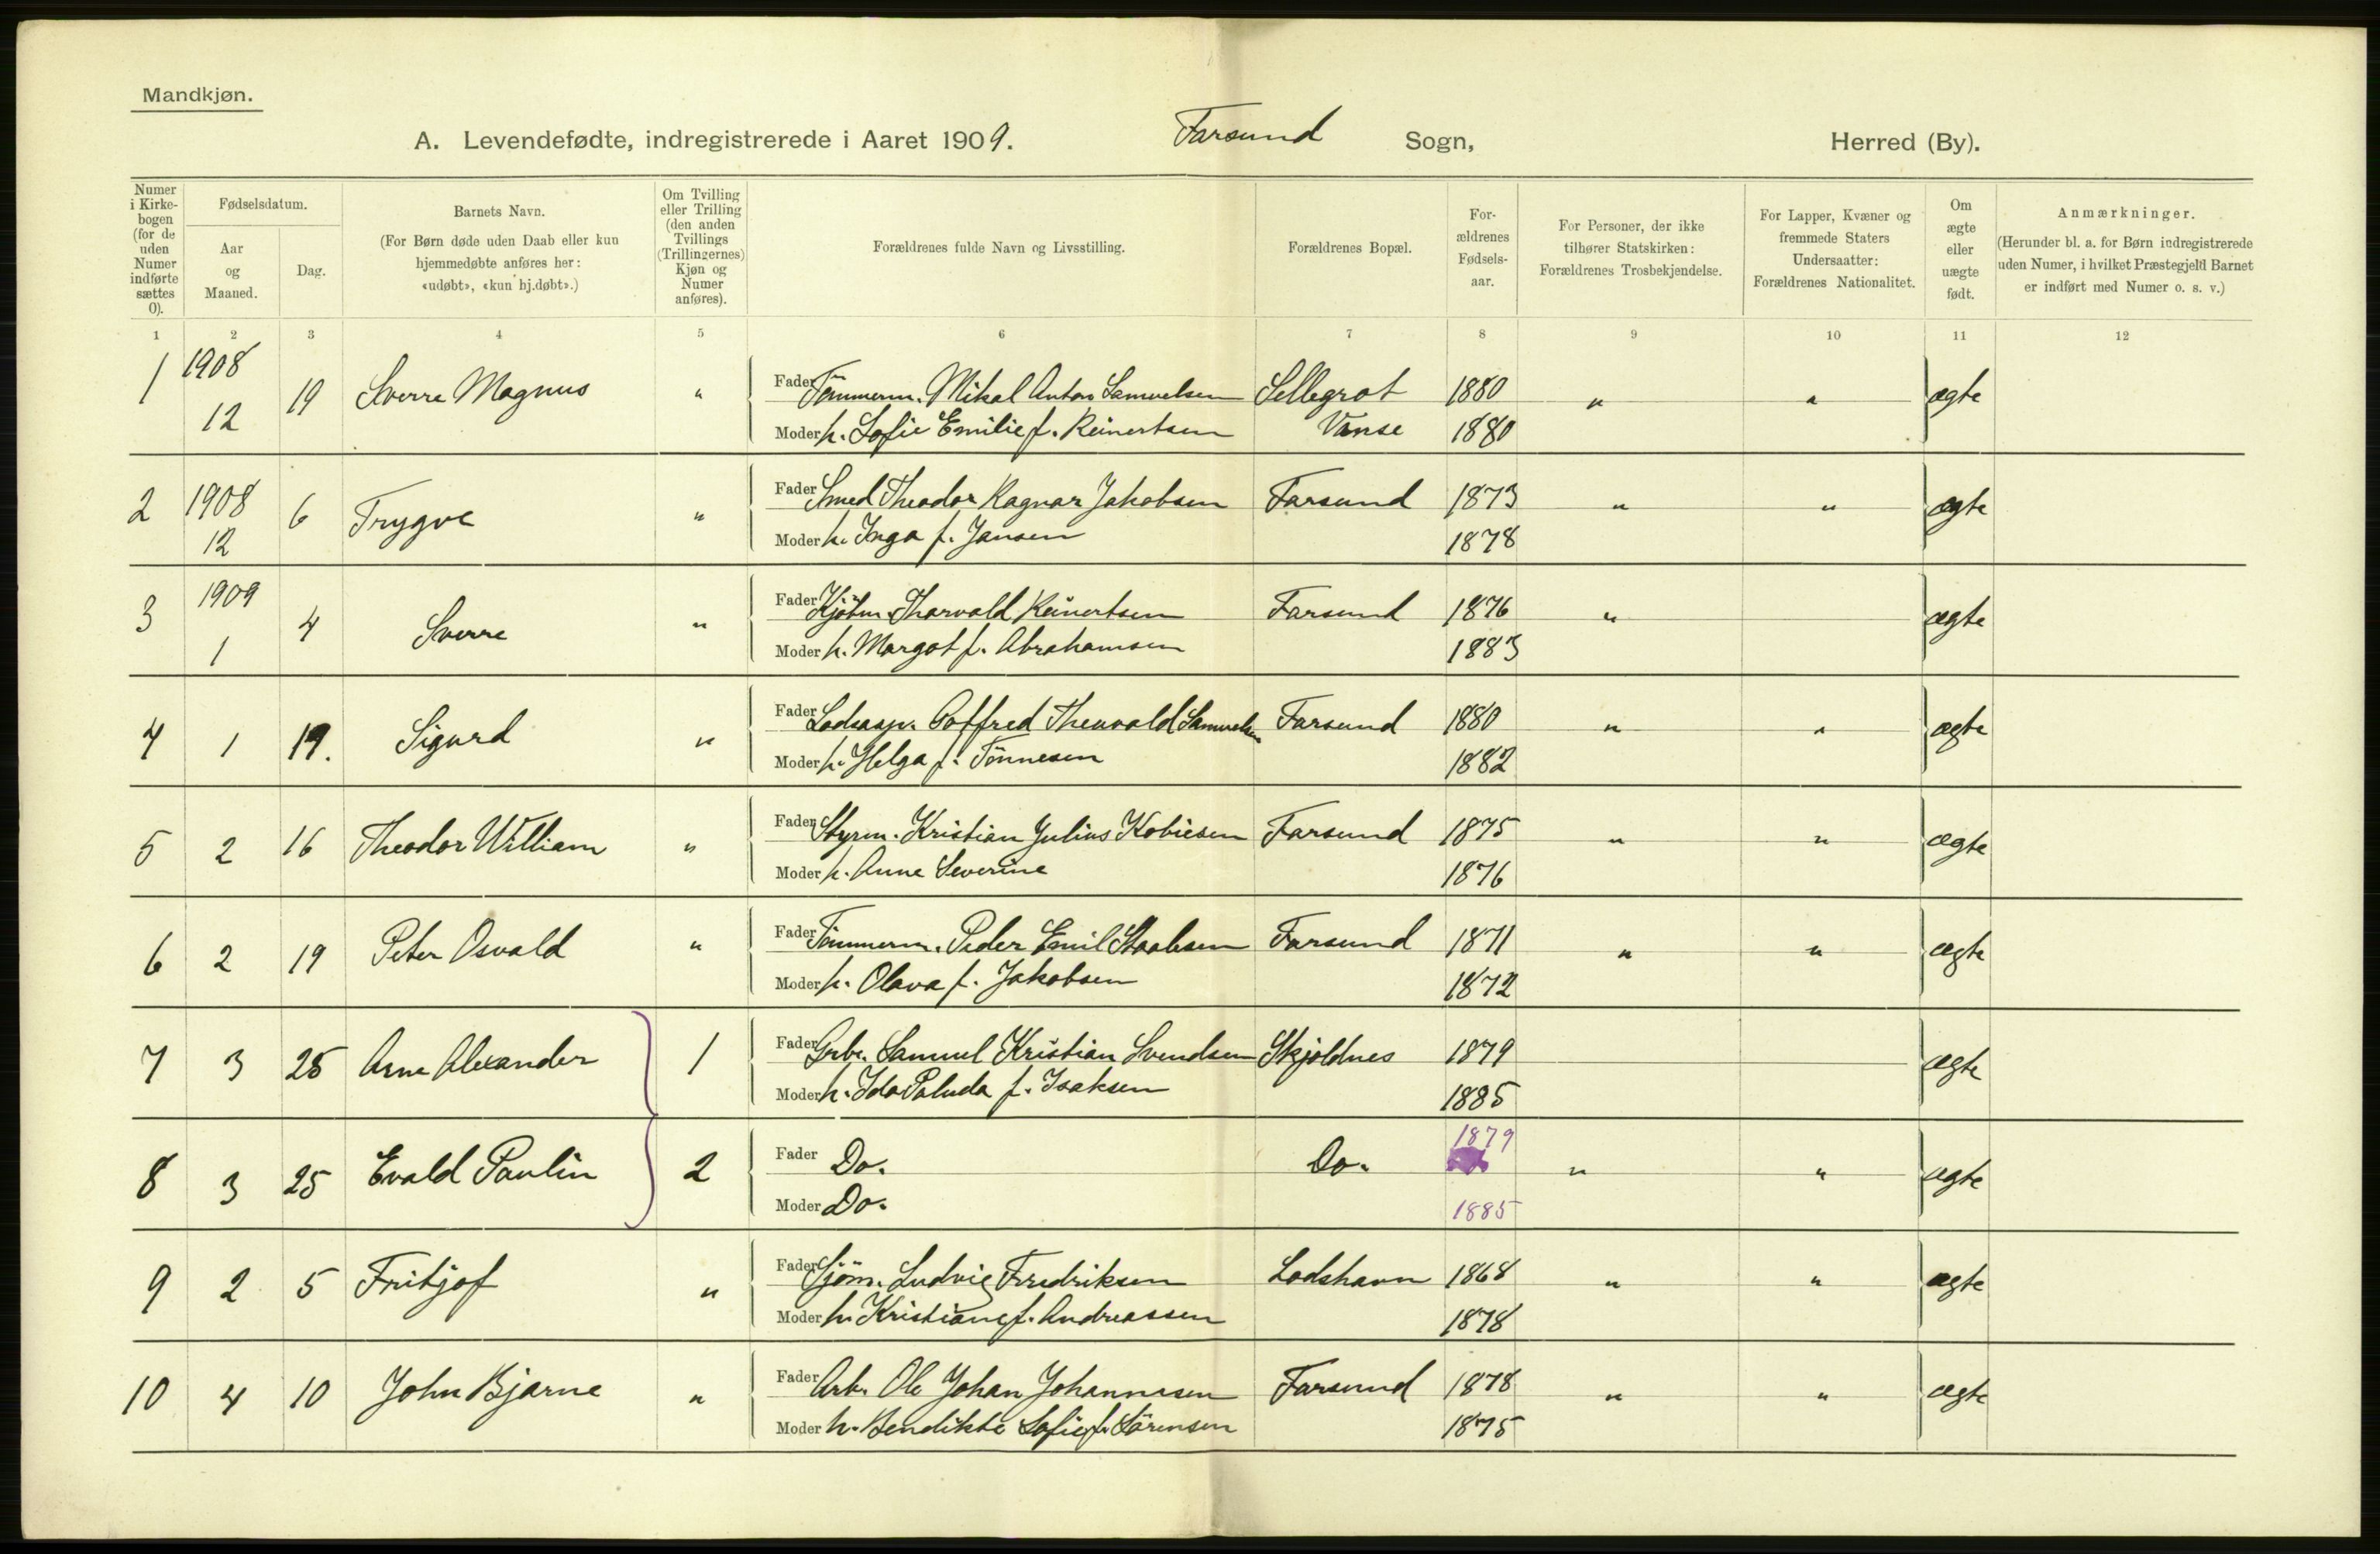 Mandkjøn.
A. Levendefødte, indregistrerede i Aaret 1909. Farsund Sogn, Herred (By).
Numer i Kirkebogen (for de uden Numer indførte sættes 0).
Fødselsdatum.
Aar og Maaned.
Dag.
Barnets Navn.
(For Børn døde uden Daab eller kun hjemmedøbte anføres her: «udøbt», «kun hj.døbt».)
Om Tvilling eller Trilling (den anden Tvillings (Trillingernes) Kjøn og Numer anføres).
Forældrenes fulde Navn og Livsstilling.
Forældrenes Bopæl.
Forældrenes Fødselsaar.
For Personer, der ikke tilhører Statskirken: Forældrenes Trosbekjendelse.
For Lapper, Kvæner og fremmede Staters Undersaatter: Forældrenes Nationalitet.
Om ægte eller uægte født.
Anmærkninger.
(Herunder bl. a. for Børn indregistrerede uden Numer, i hvilket Præstegjeld Barnet er indført med Numer o. s. v.)
1 2 3 4 5 6 7 8 9 10 11 12
1 1908 12 19 Sverre Magnus " Fader Tömmerm. Mikal Anton Samuelsen Sellegrot 1880 " " ægte
Moder h. Sofie Emilie f. Reinertsen Vanse 1880
2 1908 12 6 Trygve " Fader Smed Theodor Ragnar Jakobsen Farsund 1873 " " ægte
Moder h. Inga f. Jansen 1878
3 1909 1 4 Sverre " Fader Kjöbm. Tharvald Reinertsen Farsund 1876 " ægte
Moder h. Margot f. Abrahamsen 1883
4 1 19. Sigurd " Fader Lodsasp. Gotfred Theuvald Samuelsen Farsund 1880 " " ægte
Moder h. Helga f. Tönnesen 1882
5 2 16 Theodor William " Fader Styrm. Kristian Julius Kobiesen Farsund 1875 " " ægte
Moder h. Anne Severine 1876
6 2 19 Peter Osvald " Fader Tömmerm. Peder Emil Farsund 1871 " " ægte
Moder h. Olava f. Jakobsen 1872
7 3 25 Arne Alexander 1 Fader Grbr. Samuel Kristian Svendsen Skjoldnes 1879 ægte
Moder h. Ida Paluda f. Isaksen 1885
8 3 25 Evald Paulin 2 Fader Do. Do. 1879 " " ægte
Moder Do. 1885
9 2 5 Fritjof " Fader Sjöm. Ludvig Fredriksen Lodshavn 1868 " " ægte
Moder h. Kristiane f. Andreassen 1878
10 4 10 John Bjarne " Fader Arb. Ole Johan Johannesen Farsund 1878 " " ægte
Moder h. Bendikte Sofie f. Sörensen 1875